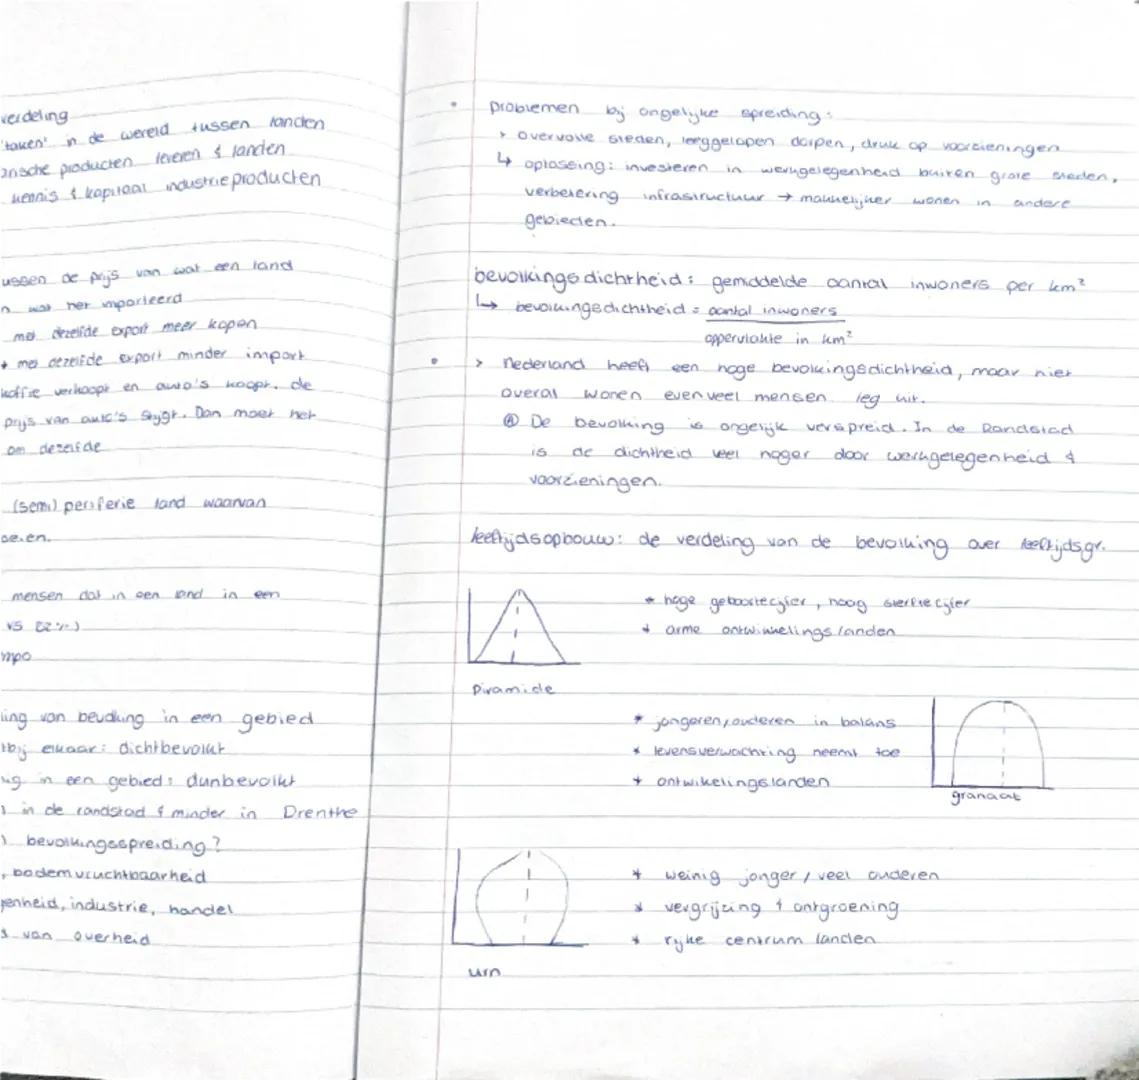 verdeling
'taken' in de wereld tussen landen
anische producten leveren & landen
kennis & kapitaal industrieproducten
ussen de prijs van wat een land
n wat het importeerd
met dezelfde export meer kopen
met dezelfde export minder import
koffie verkoopt en auto's koopt. de
prijs van auto's stijgt. Dan moet het
om dezelfde
(semi) periferie land waarvan
mensen dat in een land in een
vs
mpo
ling van bevolking in een gebied
tbij elkaar: dichtbevolkt
ug in een gebied: dunbevolkt
in de randstad & minder in Drenthe
bevolkingsspreiding?
, bodemvruchtbaarheid
genheid, industrie, handel
van overheid
• problemen bij ongelijke spreiding:
> overvolle steden, leeggelopen dorpen, druk op voorzieningen
↳ oplossing: investeren in werkgelegenheid buiten grote steden,
verbetering infrastructuur → makkelijker wonen in andere
gebieden.
bevolkingsdichtheid: gemiddelde aantal inwoners per km²
↳ bevolkingsdichtheid = aantal inwoners
oppervlakte in km²
• > Nederland heeft een hoge bevolkingsdichtheid, maar niet
overal wonen evenveel mensen. leg uit.
Ⓐ De bevolking is ongelijk verspreid. In de Randstad
is de dichtheid veel hoger door werkgelegenheid &
voorzieningen.
leeftijdsopbouw: de verdeling van de bevolking over leeftijdsgr.
* hoge geboortecijfer, hoog sterftecijfer
* arme ontwikkelingslanden
Piramide
* jongeren, ouderen in balans
* levensverwachting neemt toe
* ontwikelingslanden
granaat
* weinig jonger / veel ouderen
* vergrijzing & ontgroening
* rijke centrum landen
urn